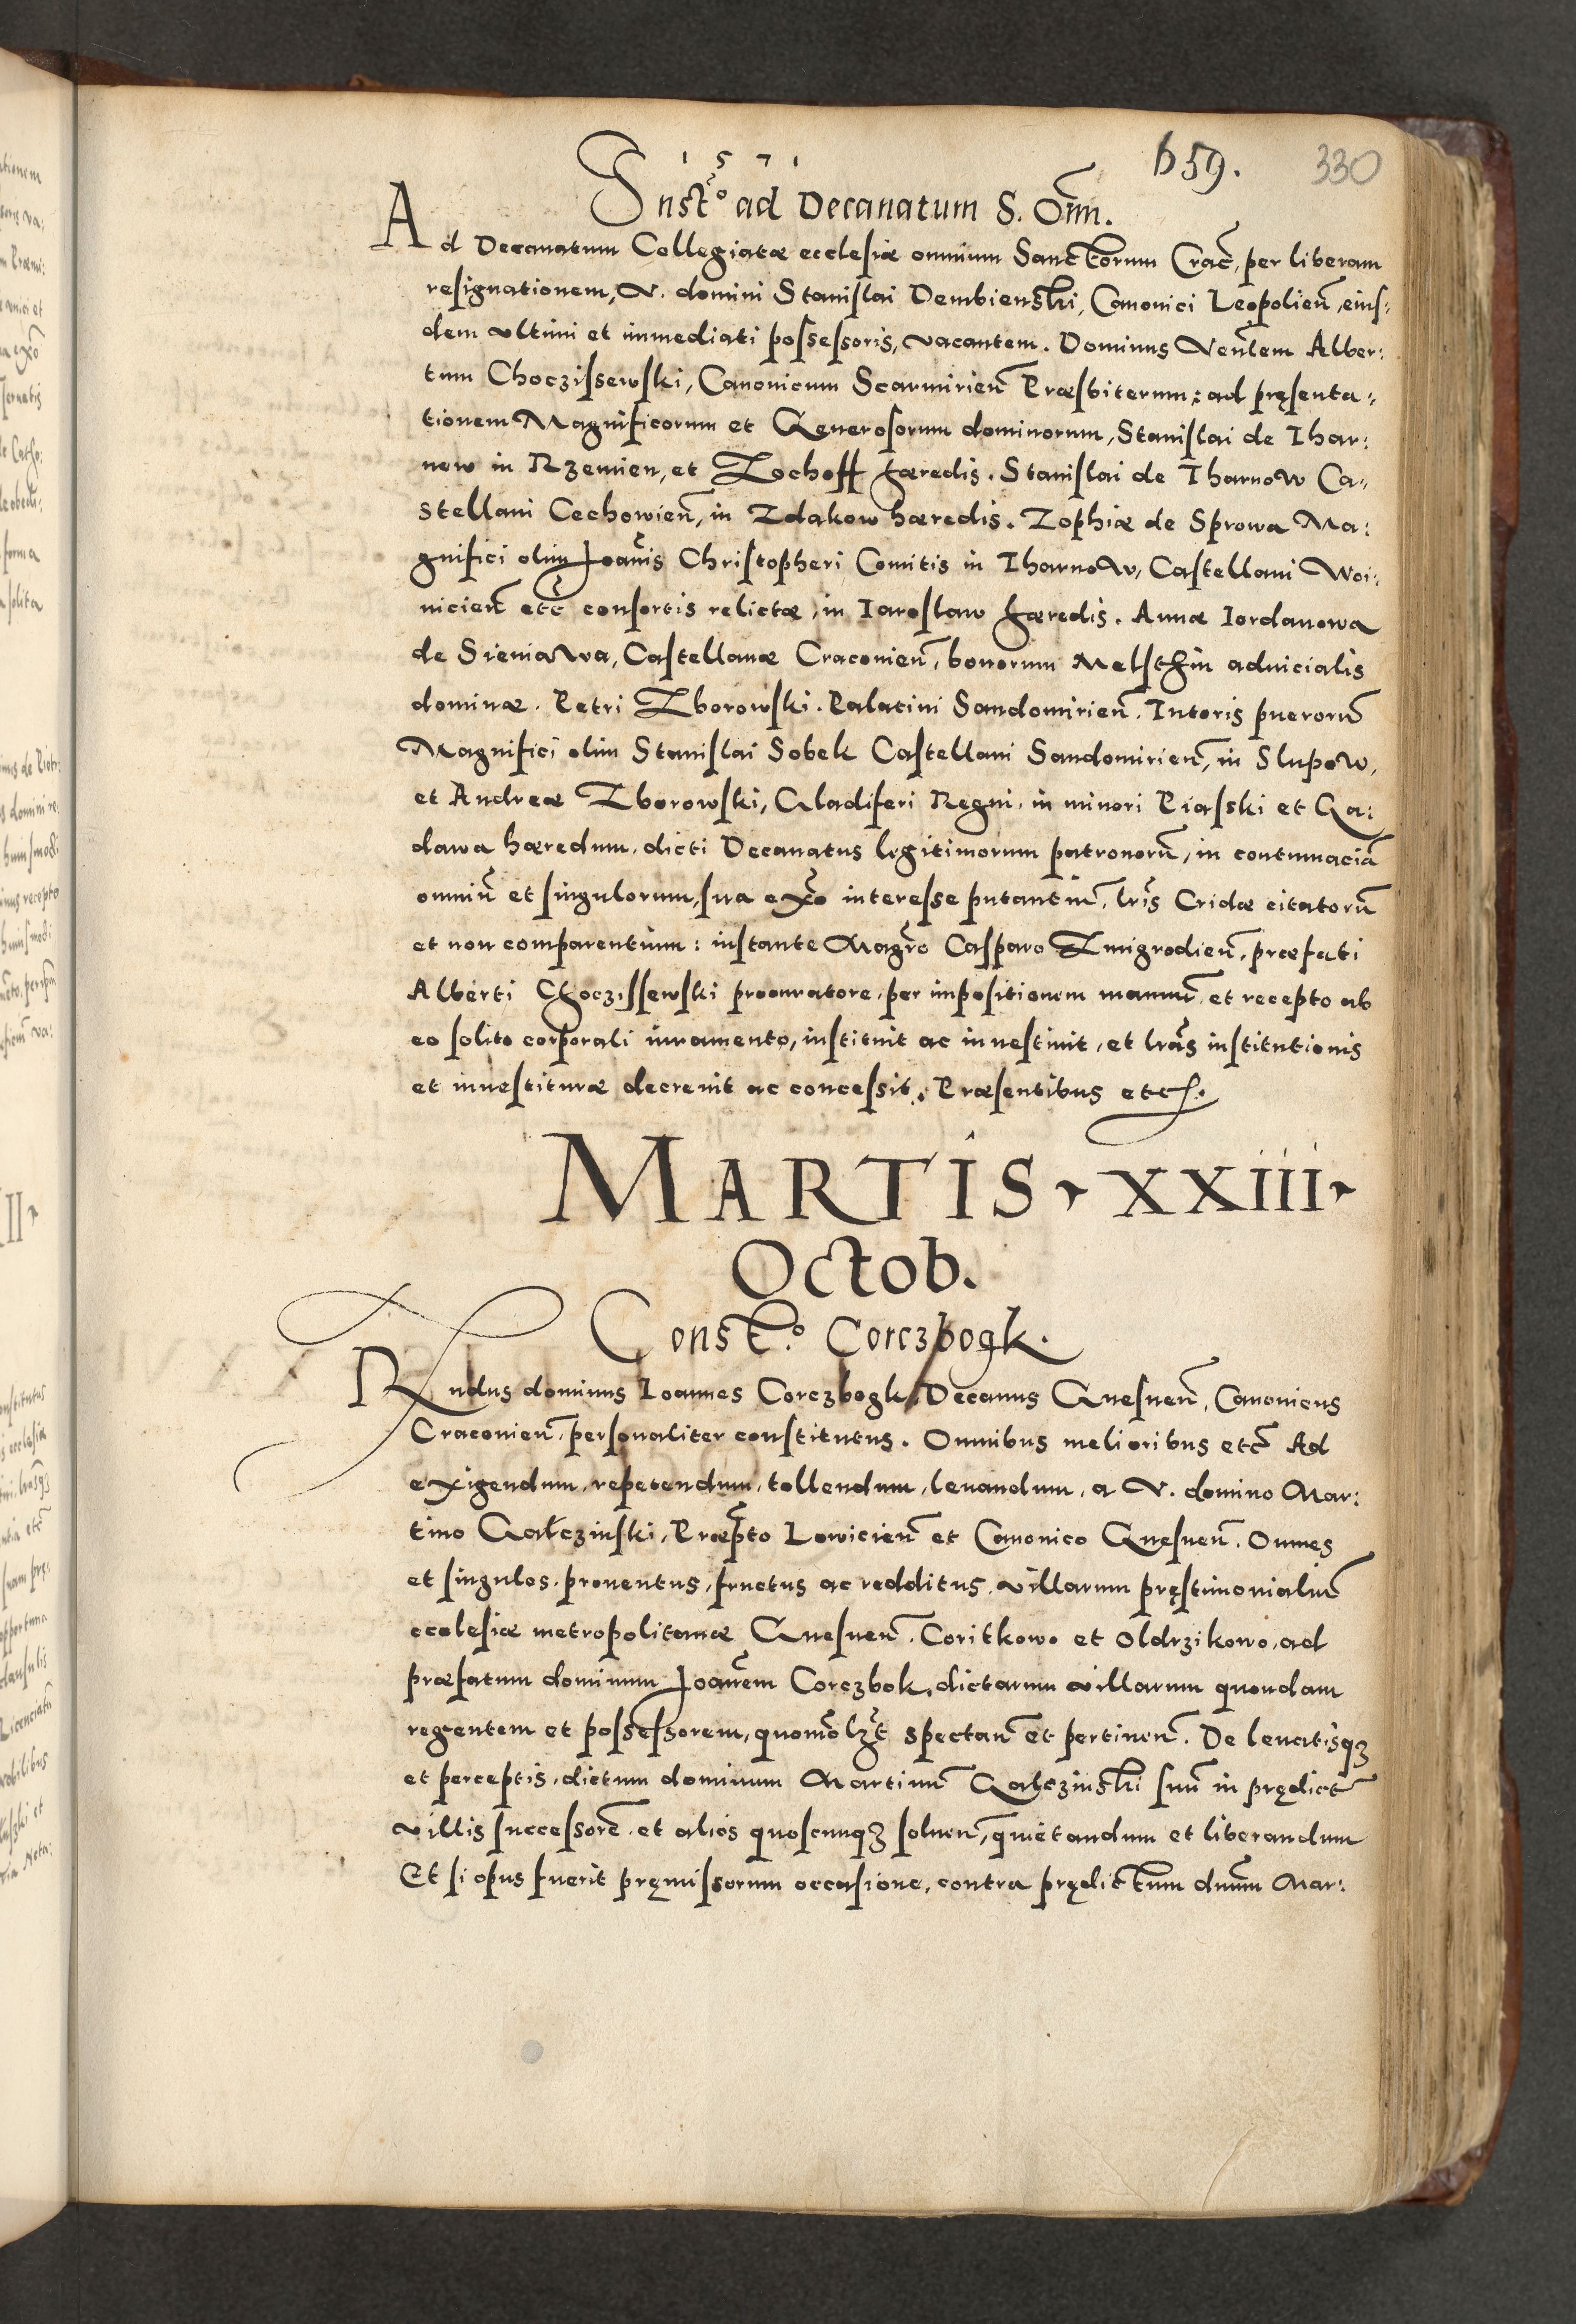 1571 659. 330
Instō ad Decanatum S. Oīm.
Ad Decanatum Collegiatæ ecclesiæ omnium Sanctorum Crac̄, per liberam
resignationem, V. domini Stanislai Dembienski, Canonici Leopolien̄, eius,
dem vltimi et immediati possessoris, vacantem. Dominus Venlem Alber:
tum Choczissewski, Canonicum Scarmirien̄ Præsbiterum: ad pręsenta,
tionem Magnificorum et Generosorum dominorum, Stanislai de Thar:
now in Rzemien, et Zochoff hæredis. Stanislai de Tharnow Ca,
stellani Cechowien̄, in Zdakow hæredis. Zophiæ de Sprowa Ma:
gnifici olim Ioan̄is Christopheri Comitis in Tharnow, Castellani Woi:
nicien̄ etc̄ consortis relictæ, in Iaroslaw hæredis. Annæ Iordanowa
de Sieniawa, Castellanæ Craconien̄, bonorum Melsthin aduicialis
dominæ. Petri Zborowski. Palatini Sandomirien̄. Tutoris puerorū
Magnifici olim Stanislai Sobek Castellani Sandomirien̄, in Slupow,
et Andreæ Zborowski, Gladiferi Regni, in minori Piasski et Ga:
dawa hæredum, dicti Decanatus legitimorum patronorū, in contumaciā
omniū et singulorum, sua ex̄o interesse putantiū, lris Cridæ citatorū
et non comparentium: instante Magro Casparo Zmigrodien̄, præfati
Alberti Choczissewski procuratore, per impositionem manuū et recepto ab
eo solito corporali iuramento, instituit ac inuestiuit, et lras institutionis
et inuestituræ decreuit ac concessit. Præsentibus etc.
MARTIS XXIII
Octob.
Constō Corczbogk.
Rndus dominus Ioannes Corczbogk, Decanus Gnesnen̄, Canonicus
Craconien̄, personaliter constitutus. Omnibus melioribus etc̄ Ad
exigendum, repetendum, tollendum, leuandum, a V. domino Mar:
tino Gałczinski, Præpto Lowicien̄ et Canonico Gnesnen̄. Omnes
et singulos, prouentus, fructus ac redditus, villarum pręstimonialiū
ecclesiæ metropolitanæ Gnesnen̄. Coritkowo et Oldrzikowo, ad
præfatum dominum Ioan̄em Corczbok, dictarum villarum quondam
regentem et possessorem, quomōlzt spectan̄ et pertinen̄. De leuatisqꝫ
et perceptis, dictum dominum Martinū Galczinski suū in prędict̄
villis successorē, et alios quoscunqꝫ soluen̄, quietandum et liberandum
Et si opus fuerit pręmissorum occasione, contra prędictum dnum Mar: